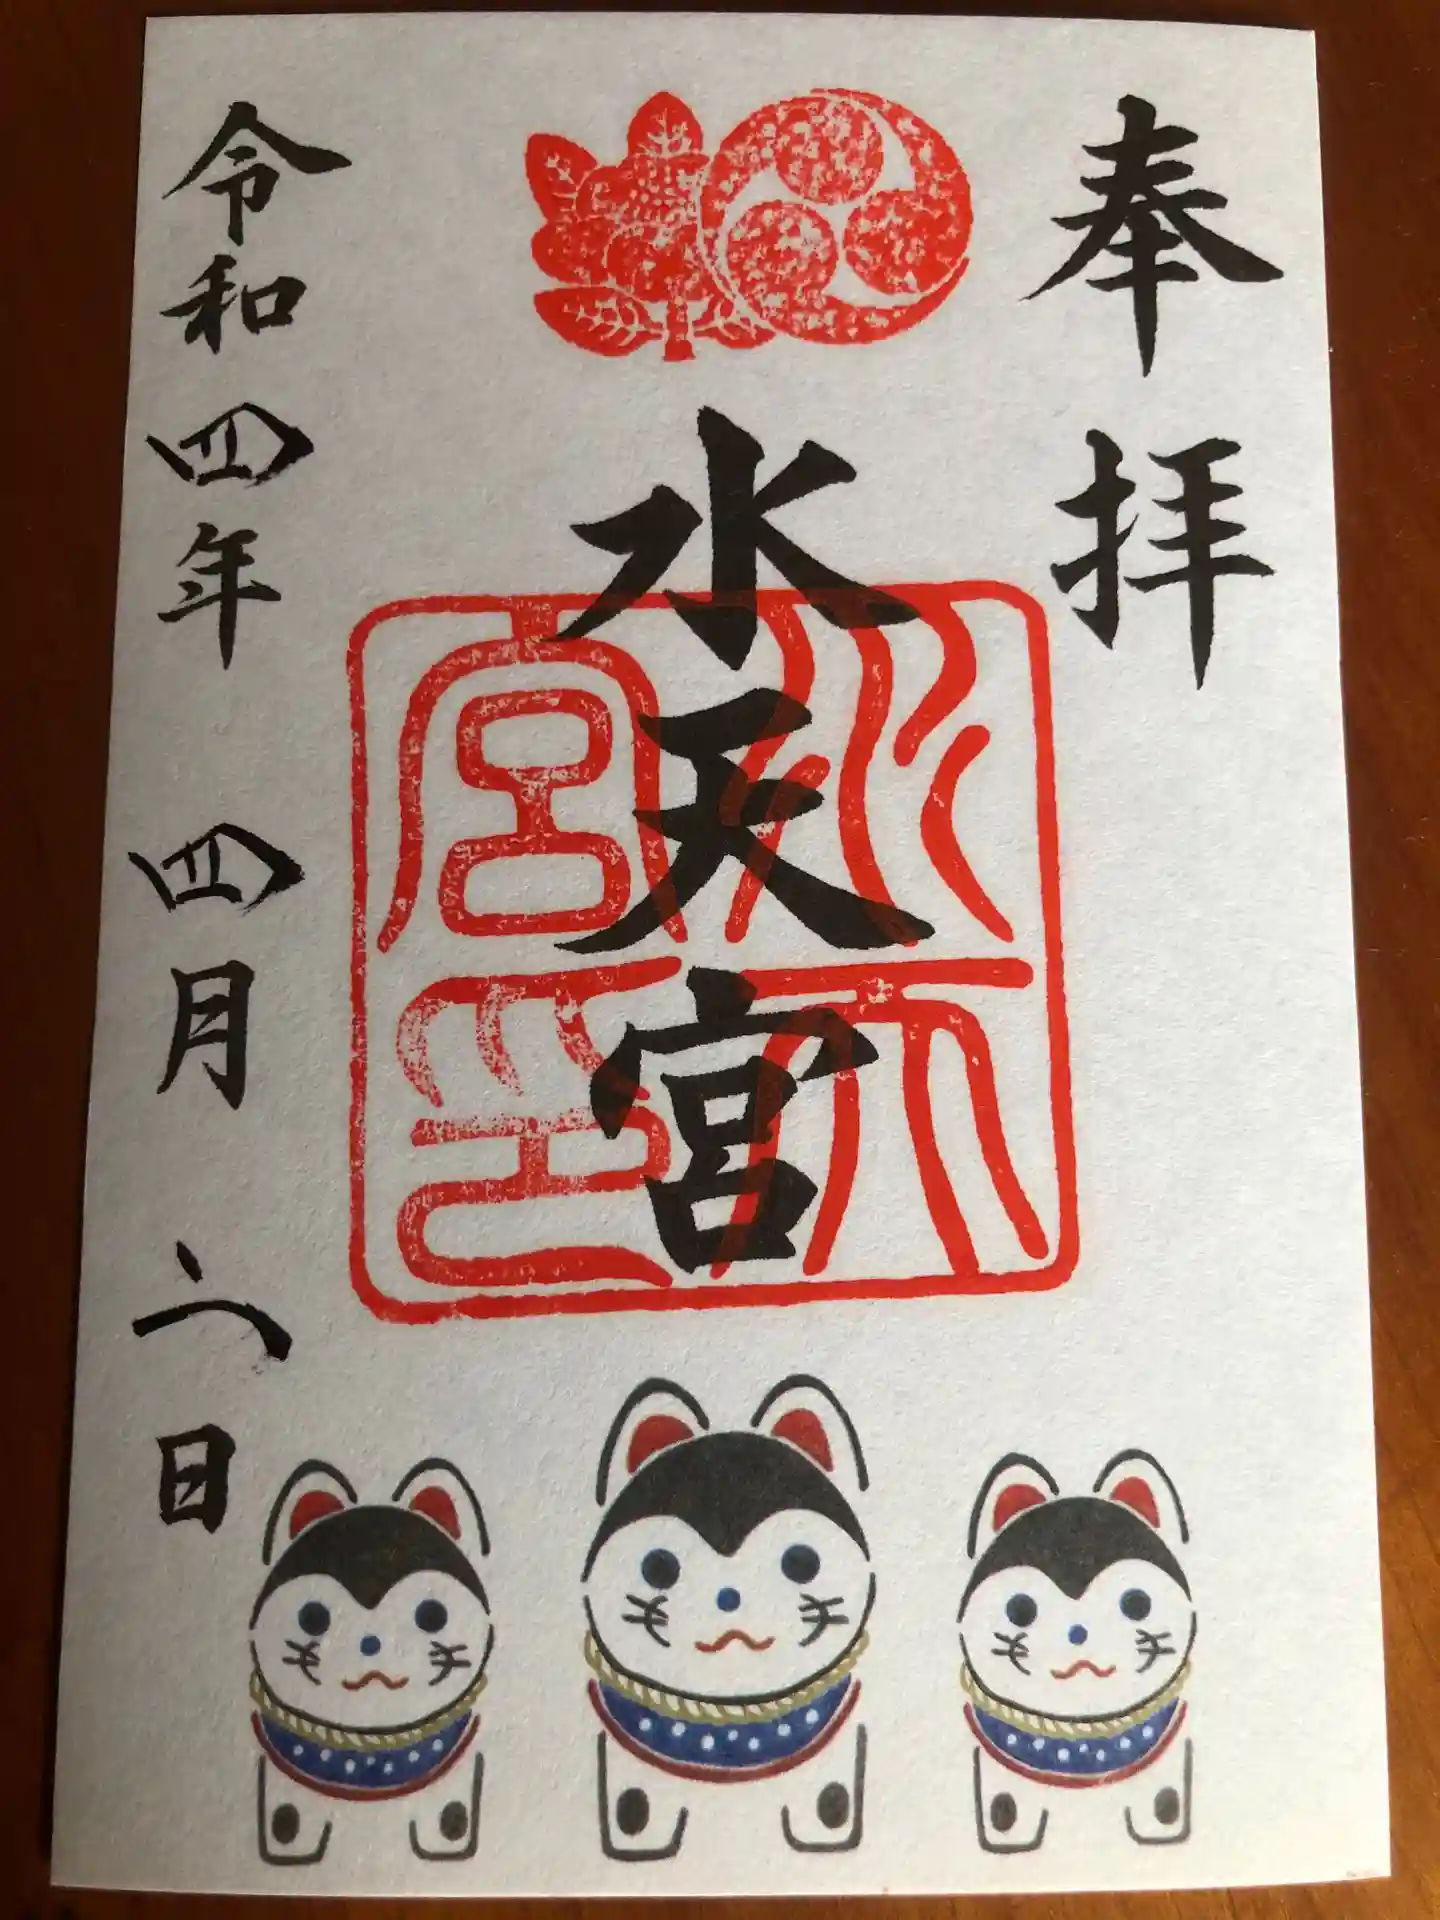 奉拝
水天宮
水天宮印
令和四年 四月 六日